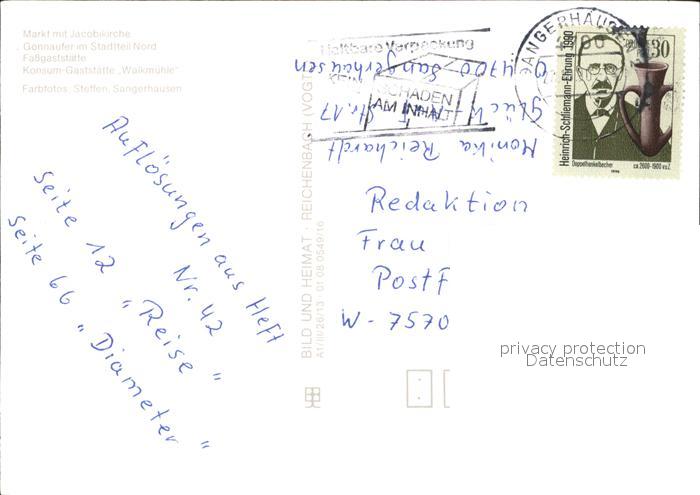 Markt mit Jacobikirche
Gonnaufer im Stadtteil Nord
Faßgaststätte
Konsum-Gaststätte "Walkmühle"
Farbfotos: Steffen, Sangerhausen
Auflösungen aus Heft
Nr. 42
Seite 12 "Reise"
Seite 66 "Diameter"
BILD UND HEIMAT · REICHENBACH (VOGTL
A1/III/26/13 01 08 0549/16
Haltbare Verpackung
KEIN SCHADEN
AM INHALT
SANGERHAUSEN
Monika Reichardt
Str. 17
O-4700 Sangerhausen
Heinrich-Schliemann-Ehrung 1990
30
Doppelhenkelbecher
ca. 2600-1900 v.u.Z.
Redaktion
Frau
Postf
W-7570
privacy protection
Datenschutz